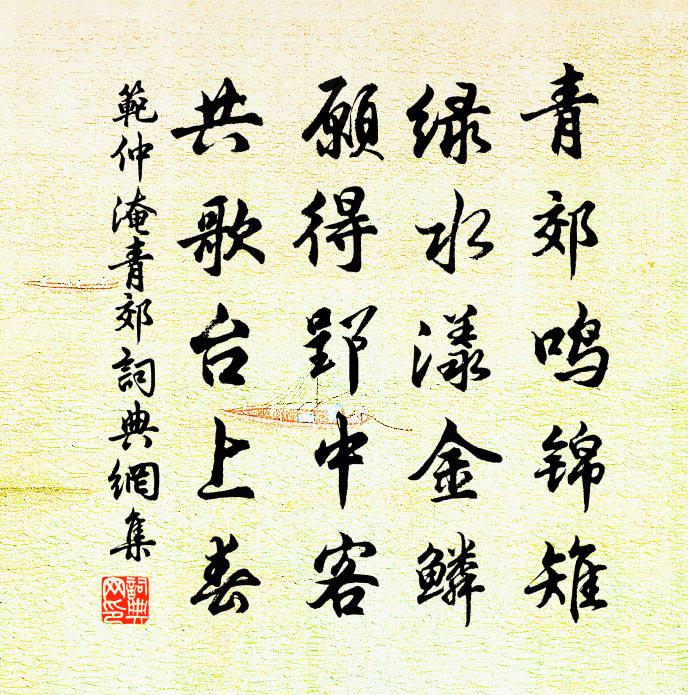 青郊鸣锦雉
绿水漾金鳞
願得郢中客
共歌台上春
範仲淹青郊詞典網集
詞典网印